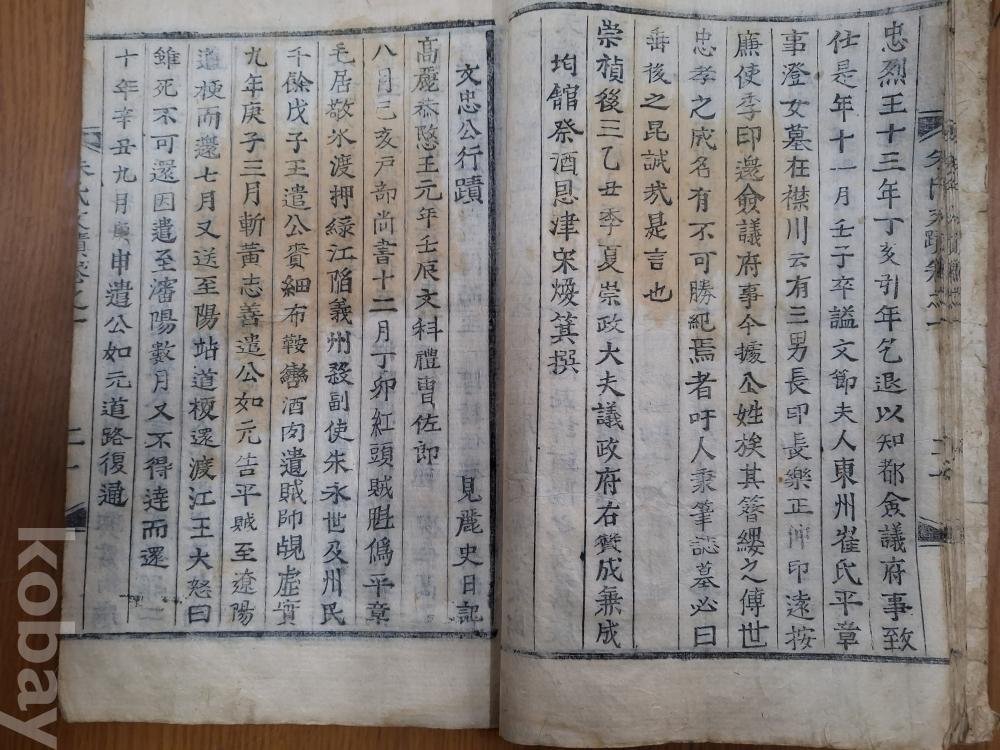 忠烈王十三年丁亥引年乞退以知都僉議府事致
仕是年十一月壬子卒謚文節夫人東州崔氏平章
事澄女墓在襟川云有三男長印長樂正仲印遠按
廉使季印邊僉議府事今據公姓族其簪纓之傳世
忠孝之成名有不可勝紀焉者吁人秉筆誌墓必曰
垂後之昆誠哉是言也
崇禎後三乙丑季夏崇政大夫議政府右贊成兼成
均館祭酒恩津宋煥箕撰
文忠公行蹟 見麗史日記
高麗恭愍王元年壬辰文科禮曺佐郎
八月己亥戶部尚書十二月丁卯紅頭賊魁僞平章
毛居敬氷渡押綠江陷義州殺副使朱永世及州民
千餘戊子王遣公賫細布鞍轡酒肉遺賊帥覘虛實
九年庚子三月斬黃志善遣公如元告平賊至遼陽
道梗而還七月又送至陽站道梗還渡江王大怒曰
雖死不可還因遣至瀋陽數月又不得達而還
十年辛丑九月庚申遣公如元道路復通
朱氏文蹟卷之一
kobay